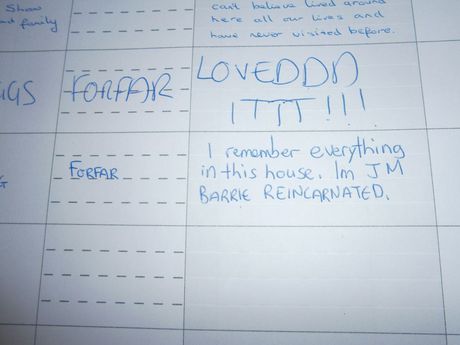 Show
can't believe lived around
nt family
here all our lives and
have never visited before.
GS
FORFAR
LOVEDDD
ITTT!!!
FORFAR
I remember everything
in this house. Im JM
BARRIE REINCARNATED.